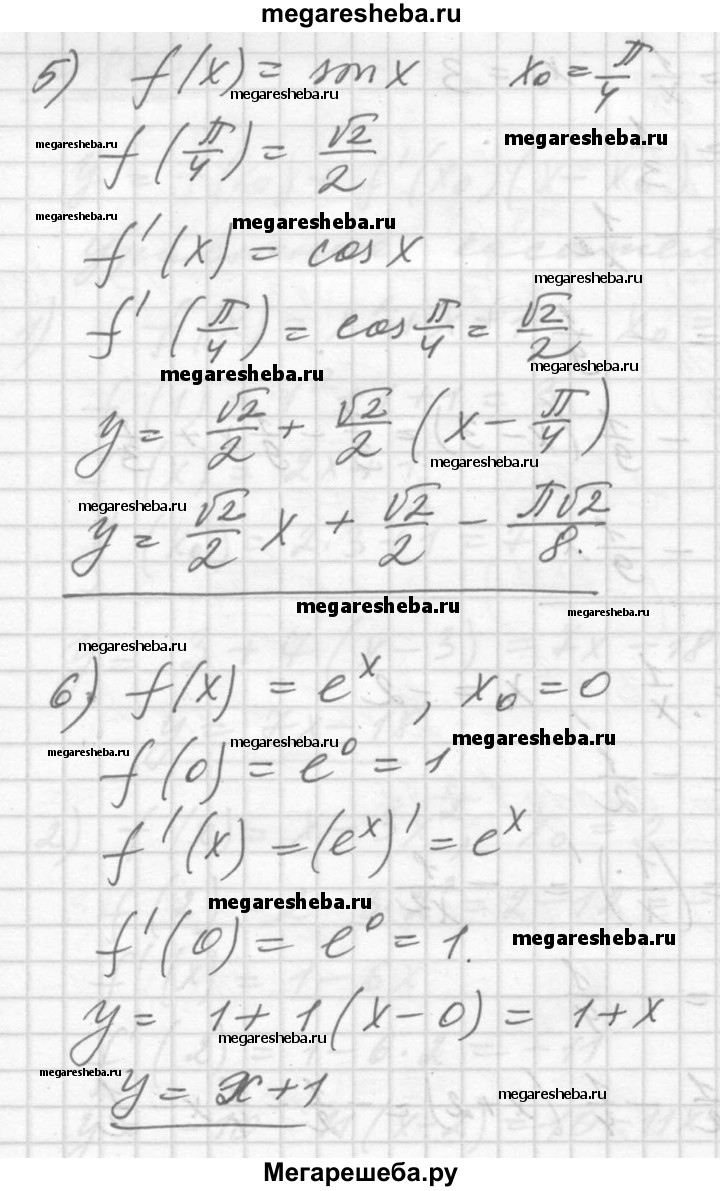 megaresheba.ru
5) f(x) = sin x x₀ = π/4
megaresheba.ru
megaresheba.ru f(π/4) = √2/2 megaresheba.ru
megaresheba.ru megaresheba.ru
f'(x) = cos x
megaresheba.ru
f'(π/4) = cos π/4 = √2/2
megaresheba.ru megaresheba.ru
y = √2/2 + √2/2 (x - π/4)
megaresheba.ru
megaresheba.ru
y = √2/2 x + √2/2 - π√2/8.
megaresheba.ru megaresheba.ru
megaresheba.ru
6) f(x) = eˣ, x₀ = 0
megaresheba.ru megaresheba.ru megaresheba.ru
f(0) = e⁰ = 1
f'(x) = (eˣ)' = eˣ
megaresheba.ru
f'(0) = e⁰ = 1. megaresheba.ru
y = 1 + 1(x - 0) = 1 + x
megaresheba.ru
megaresheba.ru
y = x + 1 megaresheba.ru
Мегарешеба.ру